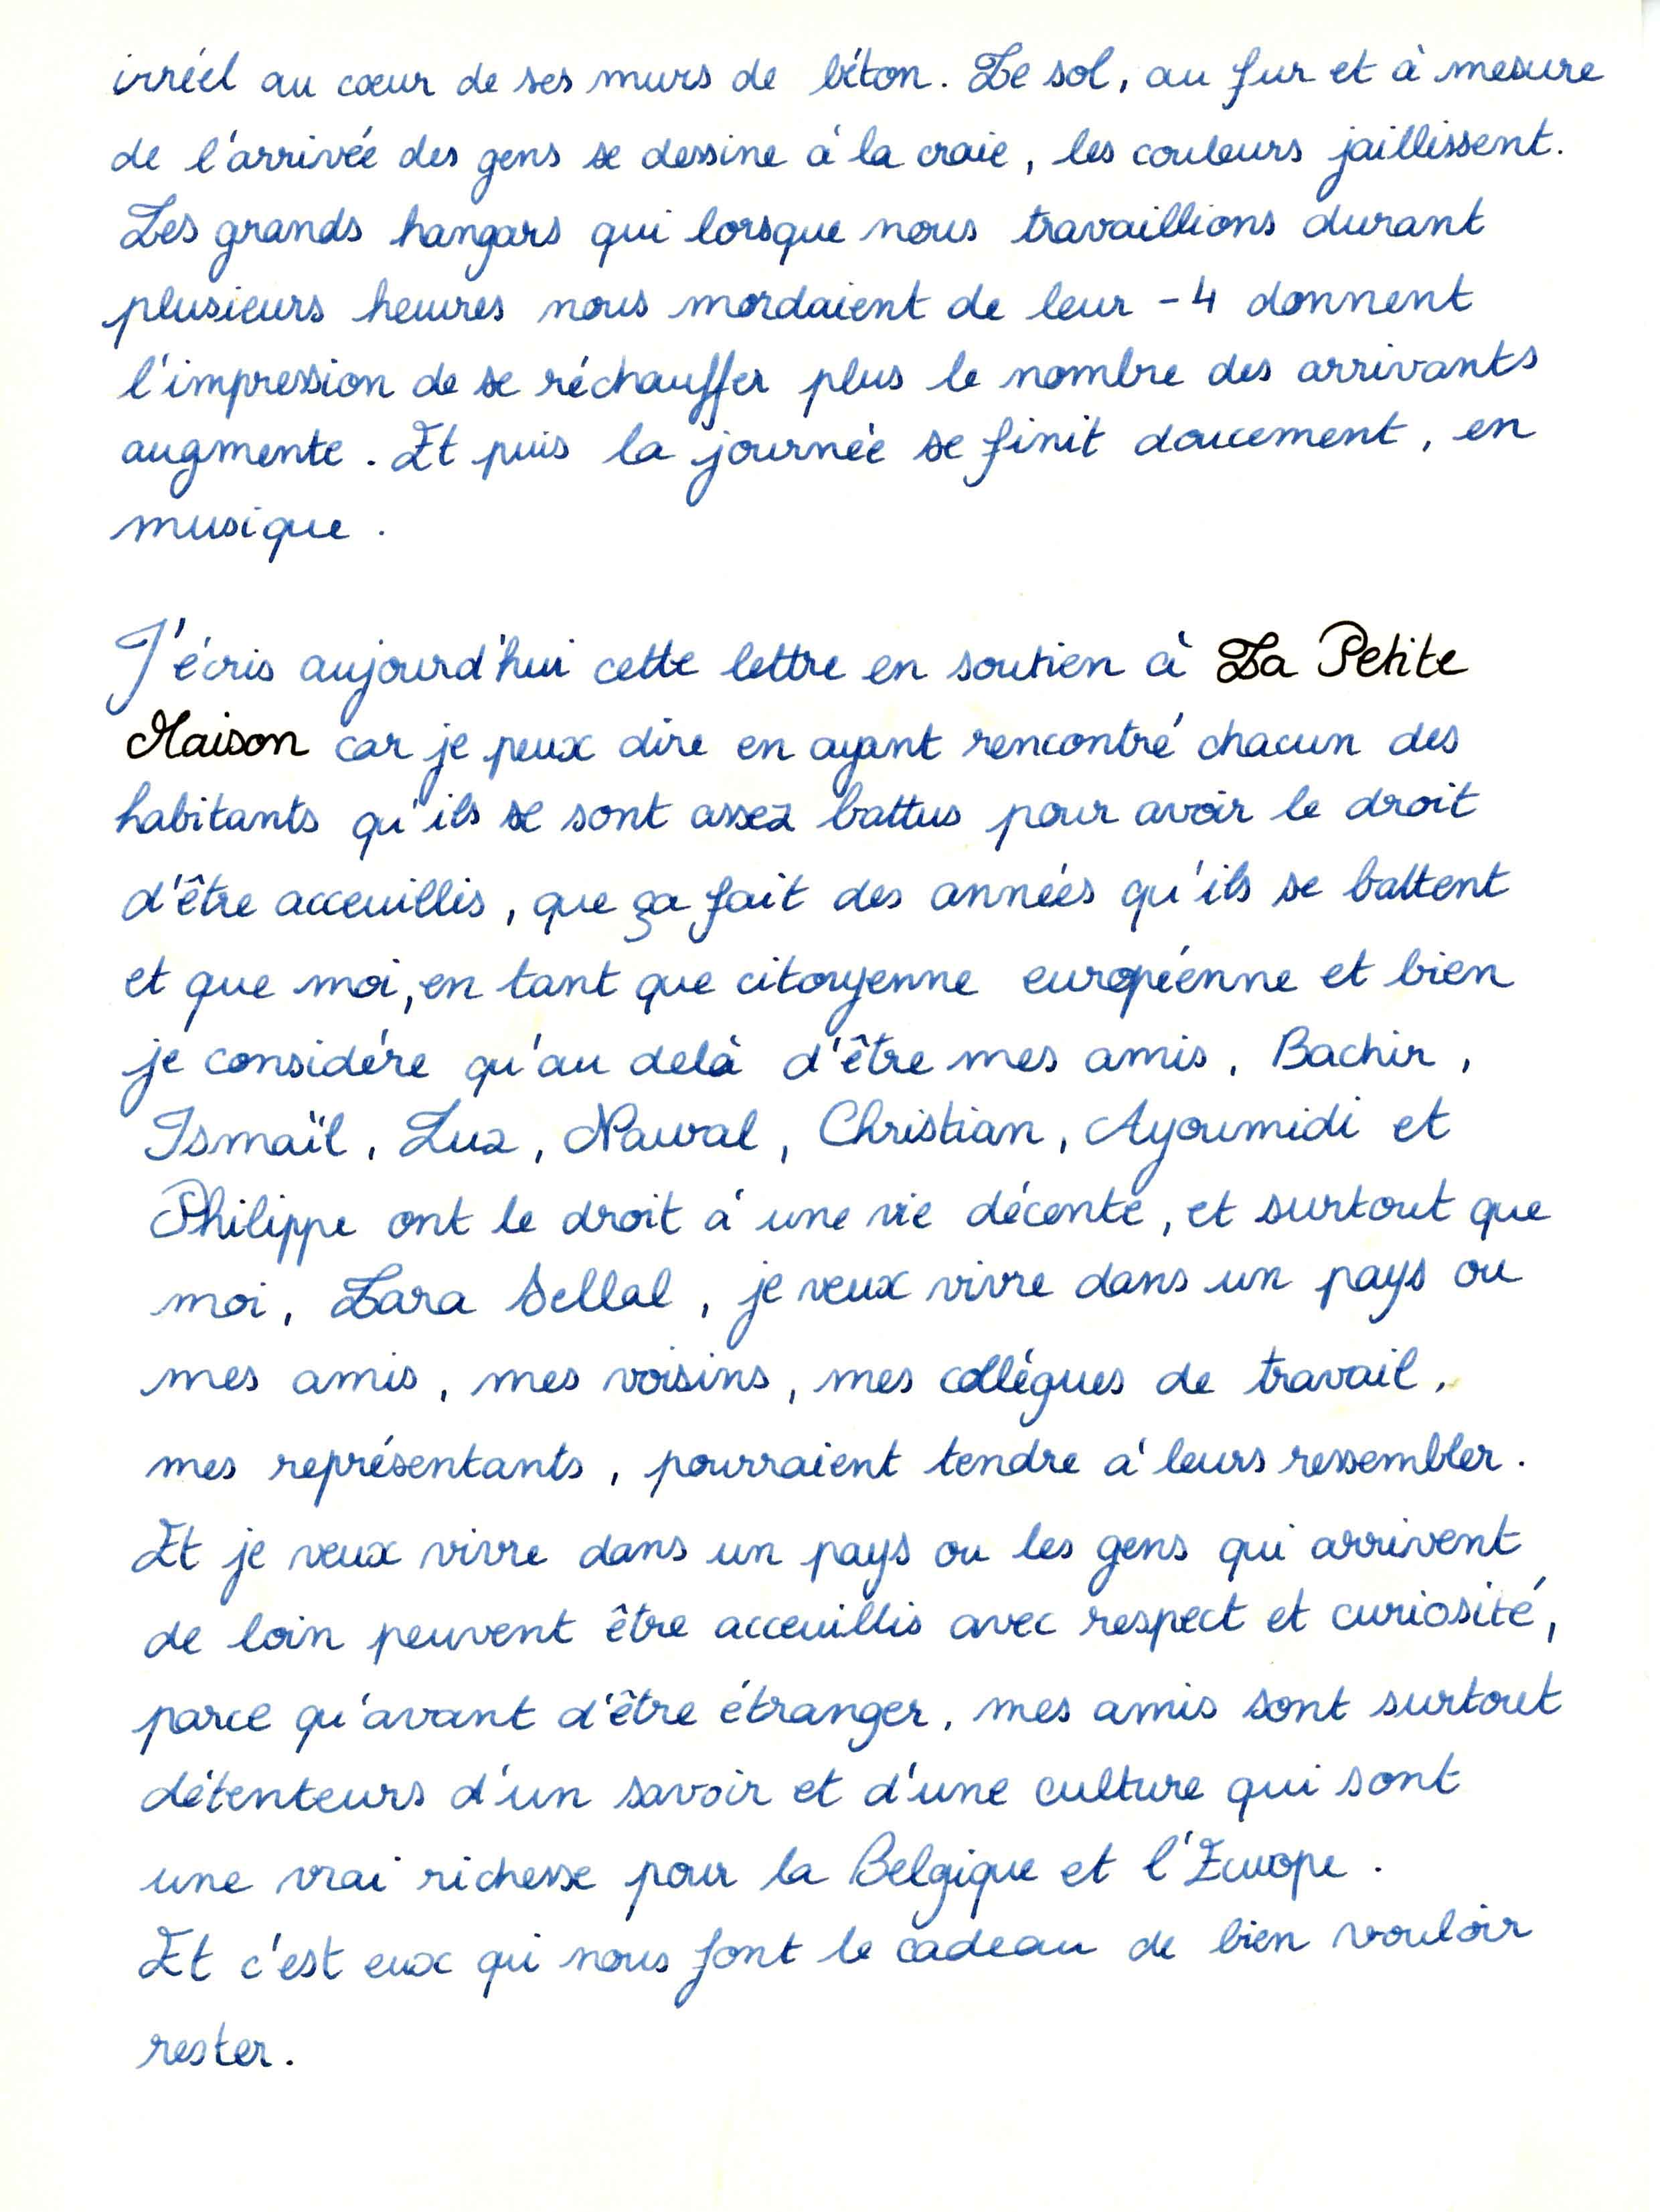 irréel au cœur de ses murs de béton. Le sol, au fur et à mesure
de l'arrivée des gens se dessine à la craie, les couleurs jaillissent.
Les grands hangars qui lorsque nous travaillions durant
plusieurs heures nous mordaient de leur -4 donnent
l'impression de se réchauffer plus le nombre des arrivants
augmente. Et puis la journée se finit doucement, en
musique.
J'écris aujourd'hui cette lettre en soutien à La Petite
Maison car je peux dire en ayant rencontré chacun des
habitants qu'ils se sont assez battus pour avoir le droit
d'être acceuillis, que ça fait des années qu'ils se battent
et que moi, en tant que citoyenne européenne et bien
je considére qu'au delà d'être mes amis, Bachir,
Ismaïl, Luz, Nawal, Christian, Ayoumidi et
Philippe ont le droit à une vie décente, et surtout que
moi, Lara Sellal, je veux vivre dans un pays ou
mes amis, mes voisins, mes collègues de travail,
mes représentants, pourraient tendre à leurs ressembler.
Et je veux vivre dans un pays ou les gens qui arrivent
de loin peuvent être acceuillis avec respect et curiosité,
parce qu'avant d'être étranger, mes amis sont surtout
détenteurs d'un savoir et d'une culture qui sont
une vrai richesse pour la Belgique et l'Europe.
Et c'est eux qui nous font le cadeau de bien vouloir
rester.